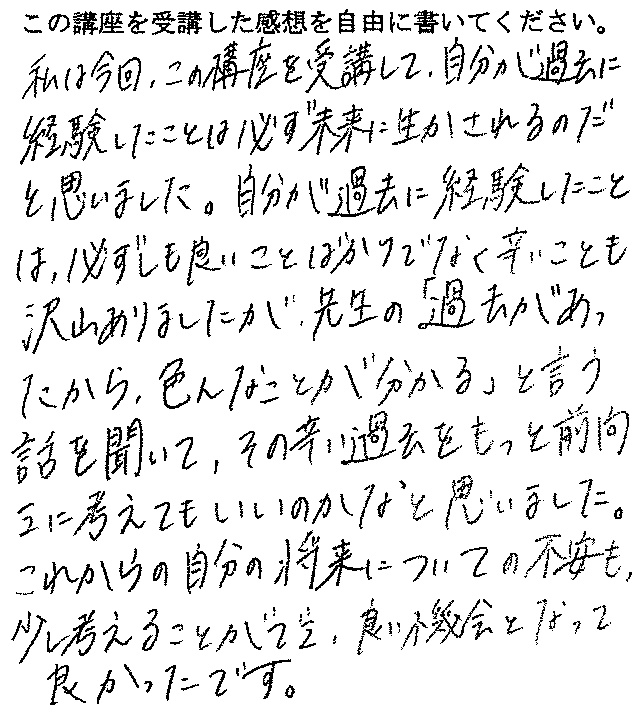 この講座を受講した感想を自由に書いてください。
私は今回、この講座を受講して、自分が過去に
経験したことは必ず未来に生かされるのだ
と思いました。自分が過去に経験したこと
は、必ずしも良いことばかりでなく辛いことも
沢山ありましたが、先生の「過去があっ
たから、色んなことが分かる」と言う
話を聞いて、その辛い過去をもっと前向
きに考えてもいいのかなと思いました。
これからの自分の将来についての不安も、
少し考えることができ、良い機会となって
良かったです。